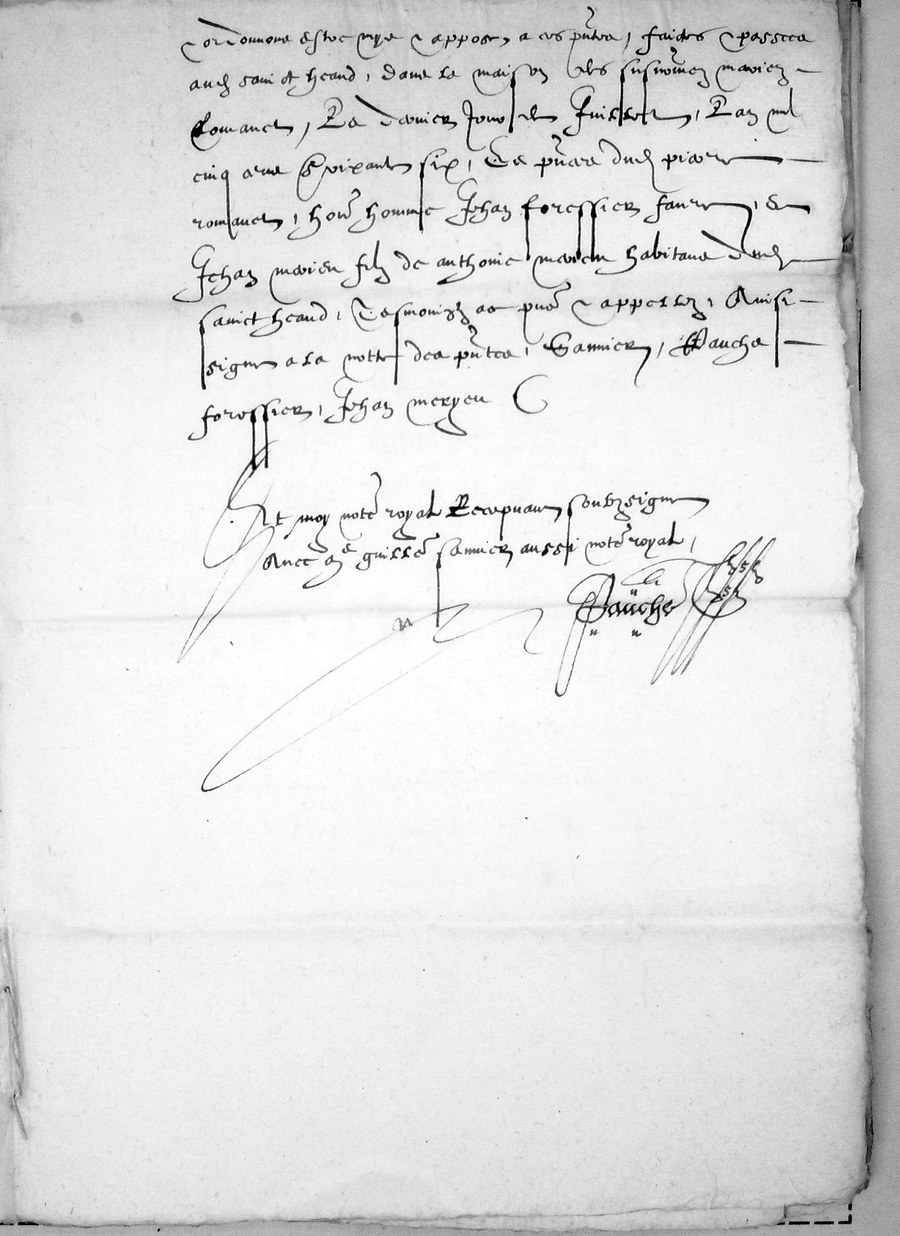 & ordonnons estre mys & apposer a ces pntes, faictes & passees
aud sainct heand, dans la maison des susnommez
Romanet, Le dernier Jour de Juillet, L'an mil
cinq cens soixante six, Es pnces dud pierre
romanet, hon homme Jehan foressier faure, et
Jehan merieu filz de anthoine merieu habitans dud
sainct heand, Tesmoingz ad ce pns & appellez, Ainsi
signe a la notte des pntes, Sannier, Pauche
foressier, Jehan meryeu
Et moy notre royal Recepvant soubzsigne
Avec me guille sannier aussi notre royal,
Pauche